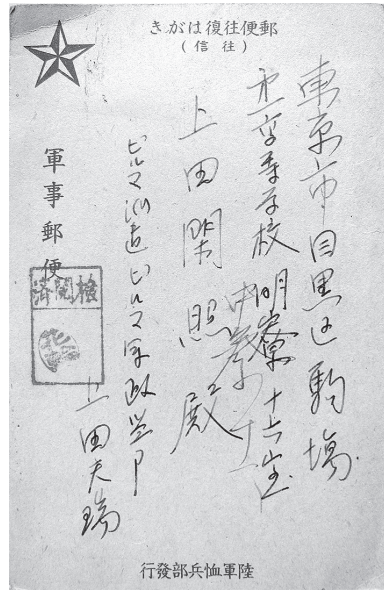 郵便往復はがき
(往信)
東京市目黒区駒場
第一高等学校明寮十六室
上田閑照殿
ビルマ派遣ビルマ軍政監部
上田天瑞
軍事郵便
檢閲濟
陸軍恤兵部發行